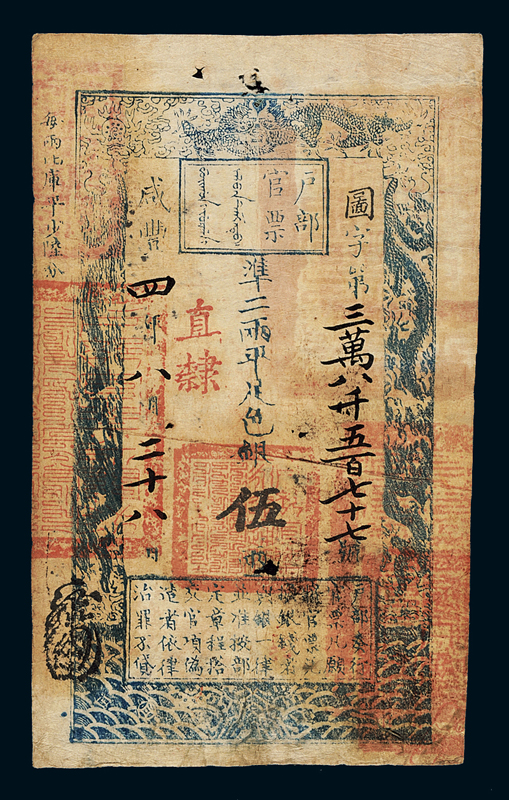 戶部
官票
圖字第三萬八仟五百七十七號
準二兩平足色銀伍兩
直隸
咸豐四年八月二十八日
每兩比庫平少陸分
戶部奏行
官票凡願
將官票兌
換銀錢者
與銀一律
並准按部
定章程搭
交官項偽
造者依律
治罪不貸